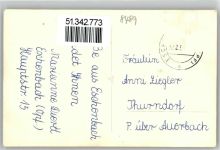 51.342.773
8489
3e aus Eschenbach
det Ihnen
Marianne
Eschenbach (Opf.)
Hauptstr. 15
Fräulein
Anni Ziegler
Thurndorf
P. über Auerbach